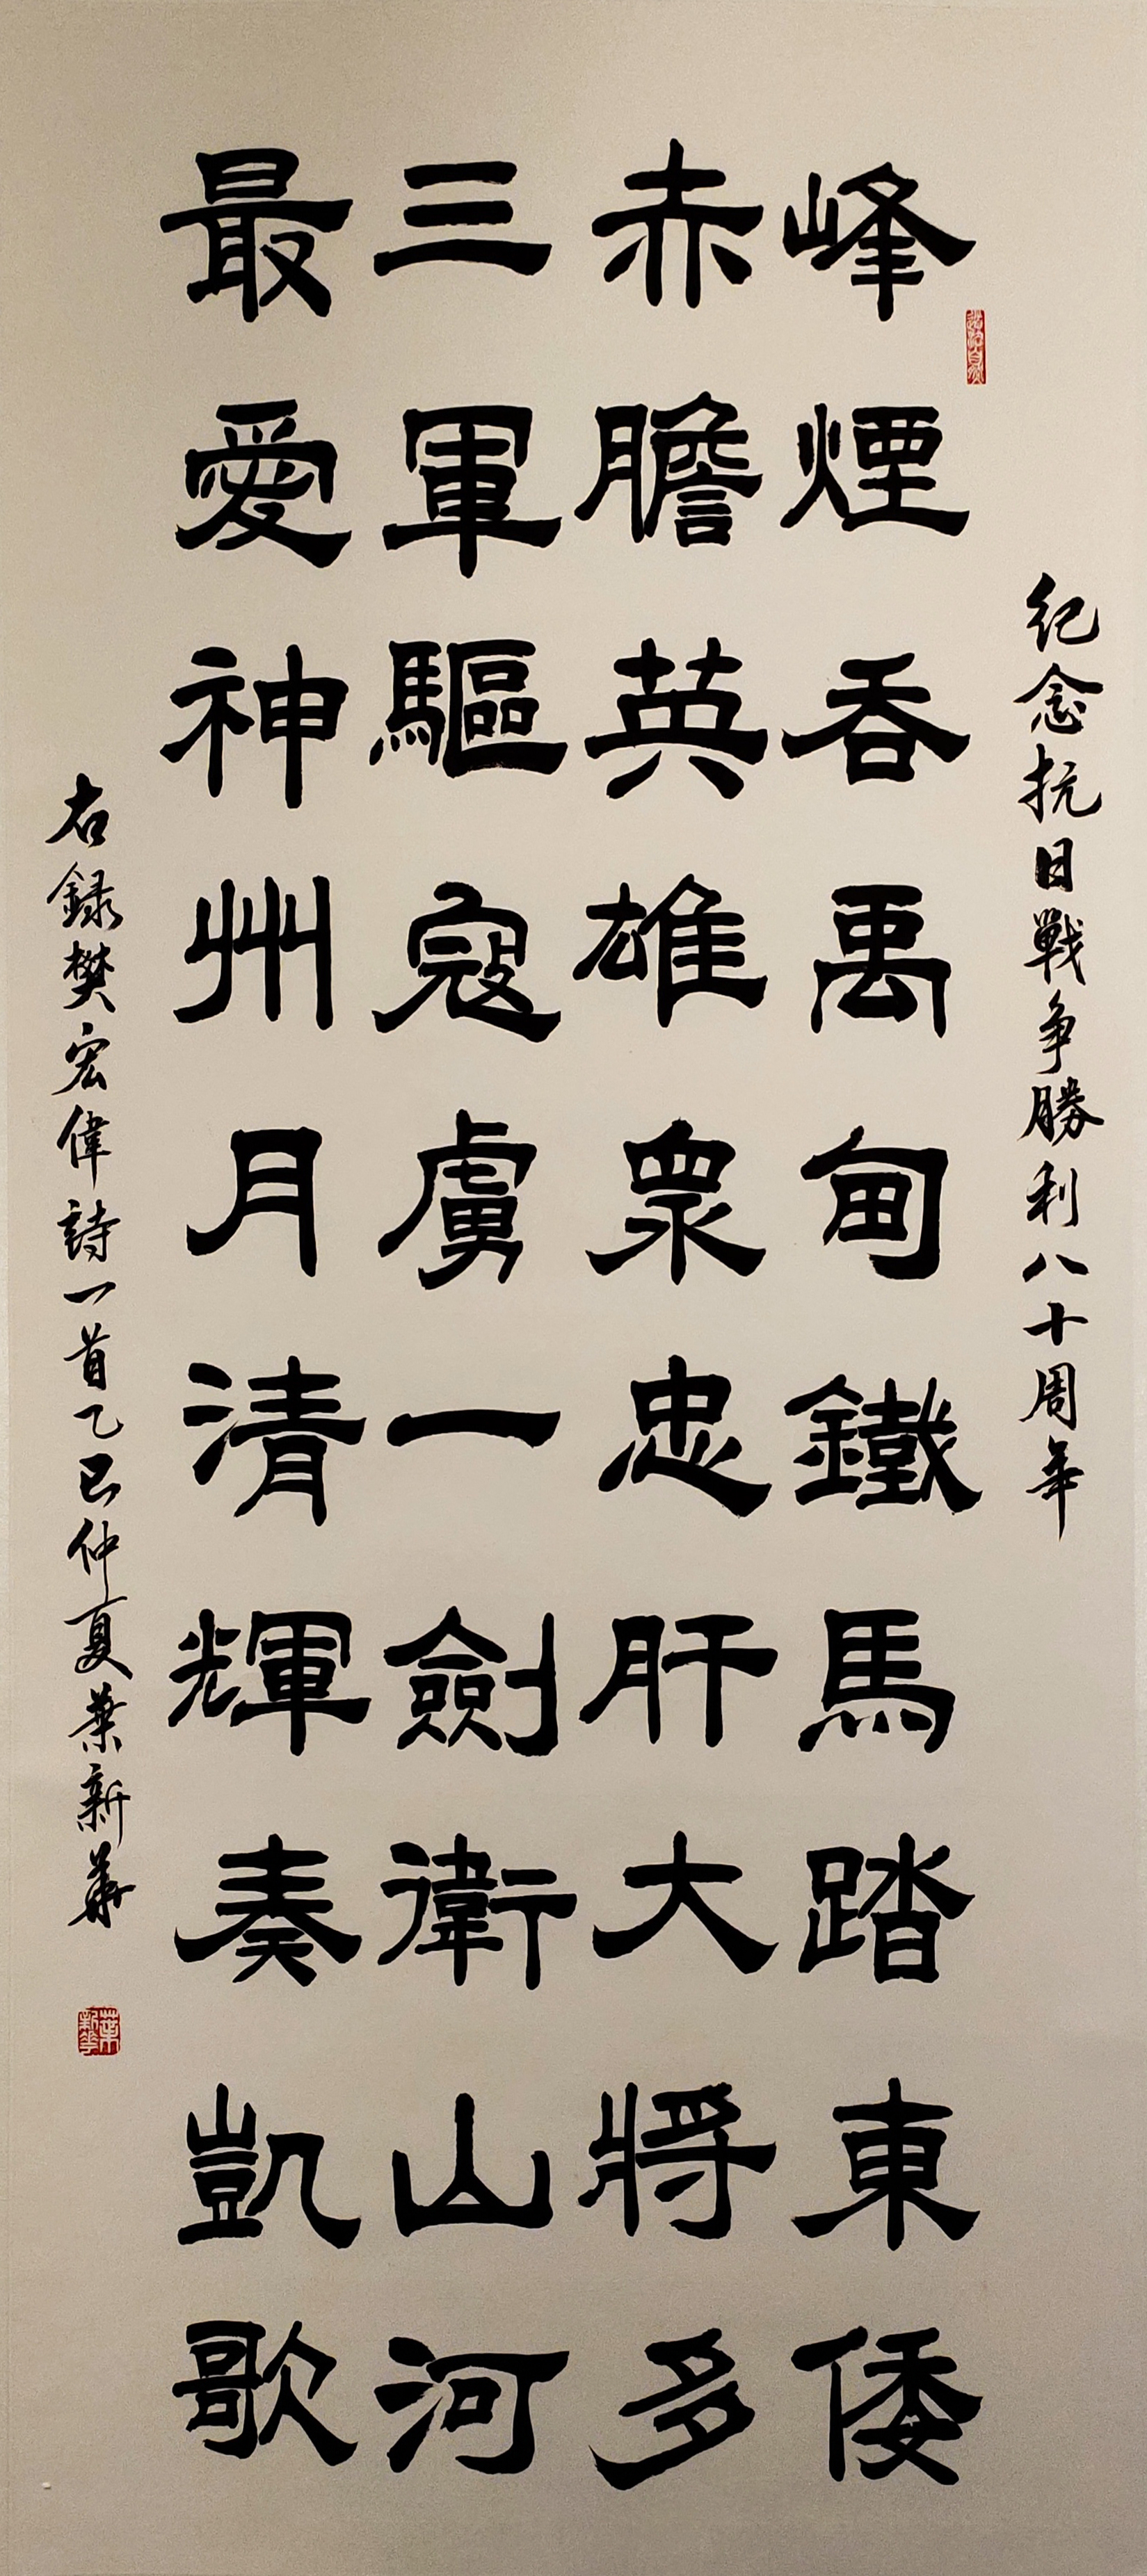 纪念抗日戰争勝利八十周年
道法自然
峰煙吞禹甸鐵馬踏東倭
赤膽英雄眾忠肝大將多
三軍驅寇虜一劍衛山河
最愛神州月清輝奏凱歌
右録樊宏偉詩一首乙巳仲夏葉新華
葉新華